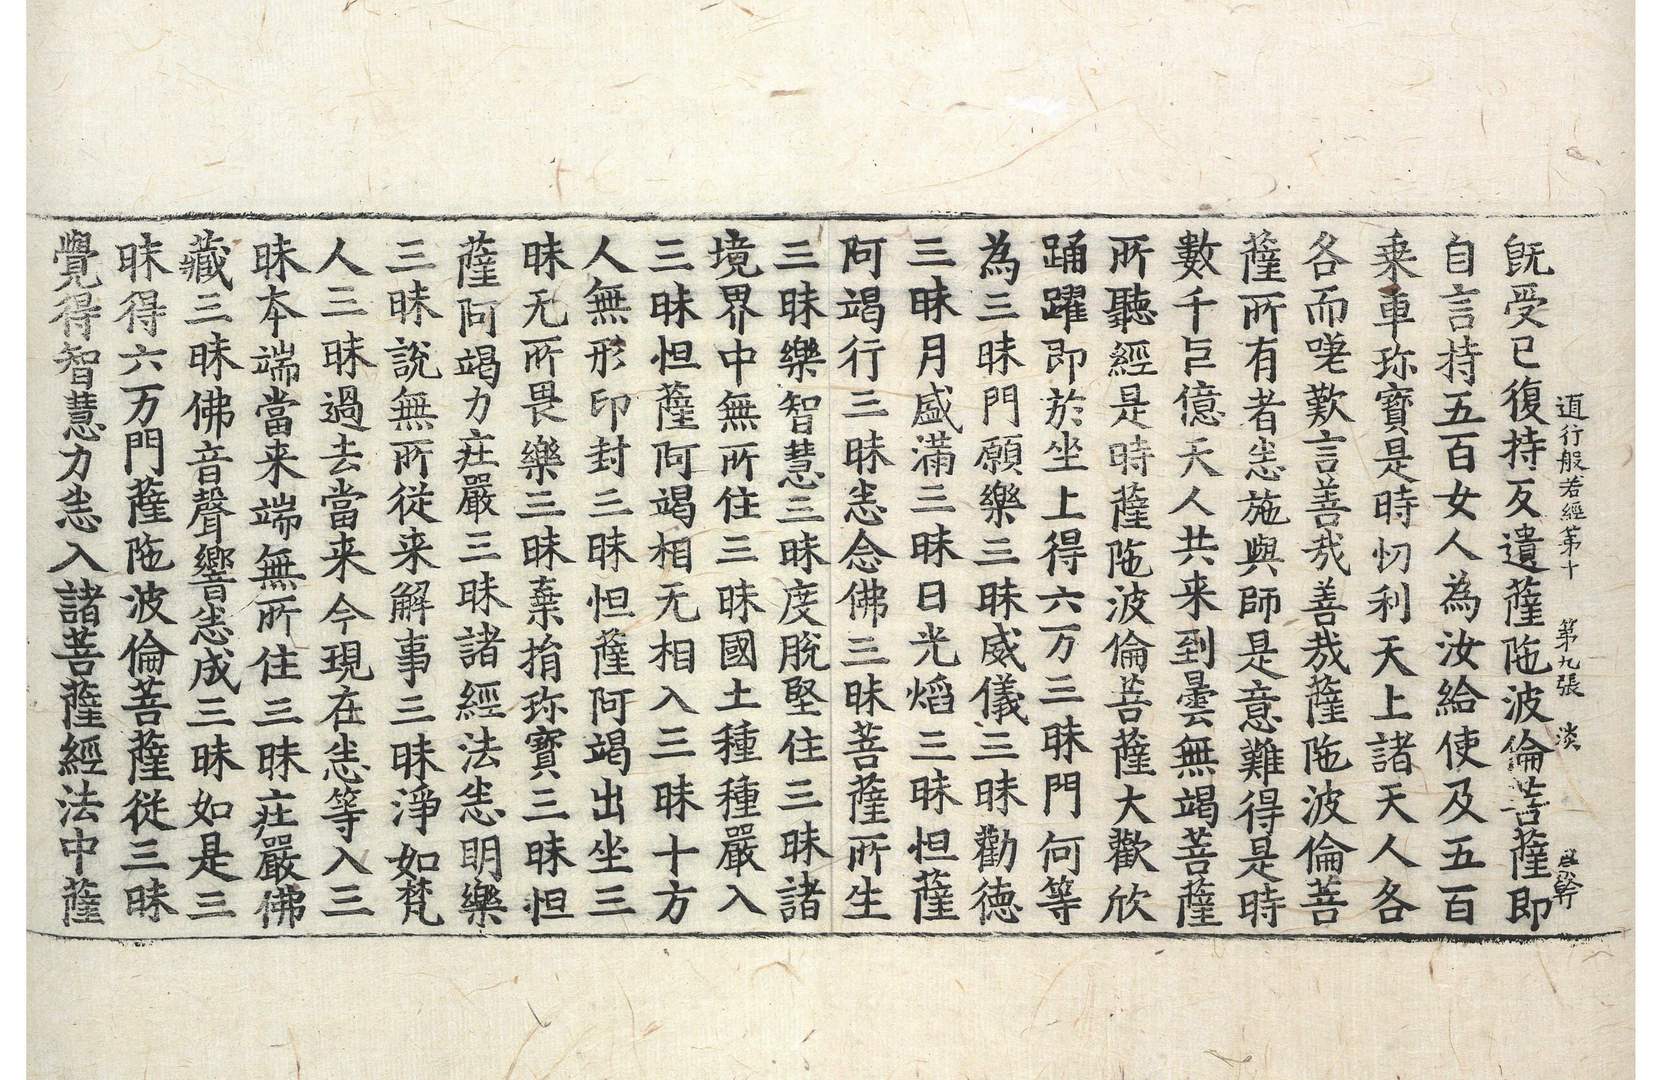 道行般若經第十　第九張　淡
既受已復持反遺薩陁波倫菩薩即
自言持五百女人為汝給使及五百
乗車珎寶是時忉利天上諸天人各
各而嗟歎言善㢤善㢤薩陁波倫菩
薩所有者悉施與師是意難得是時
數千巨億天人共来到曇無竭菩薩
所聽經是時薩陁波倫菩薩大歡欣
踊躍即於坐上得六万三昧門何等
為三昧門願樂三昧威儀三昧勸德
三昧月盛滿三昧日光焰三昧怛薩
阿竭行三昧悉念佛三昧菩薩所生
三昧樂智慧三昧度脫堅住三昧諸
境界中無所住三昧國土種種嚴入
三昧怛薩阿竭相无相入三昧十方
人無形印封三昧怛薩阿竭出坐三
昧无所畏樂三昧棄捐珎寶三昧怛
薩阿竭力庄嚴三昧諸經法悉明樂
三昧說無所從来解事三昧淨如梵
人三昧過去當来今現在悉等入三
昧本端當来端無所住三昧庄嚴佛
藏三昧佛音聲響悉成三昧如是三
昧得六万門薩陁波倫菩薩從三昧
覺得智慧力悉入諸菩薩經法中薩